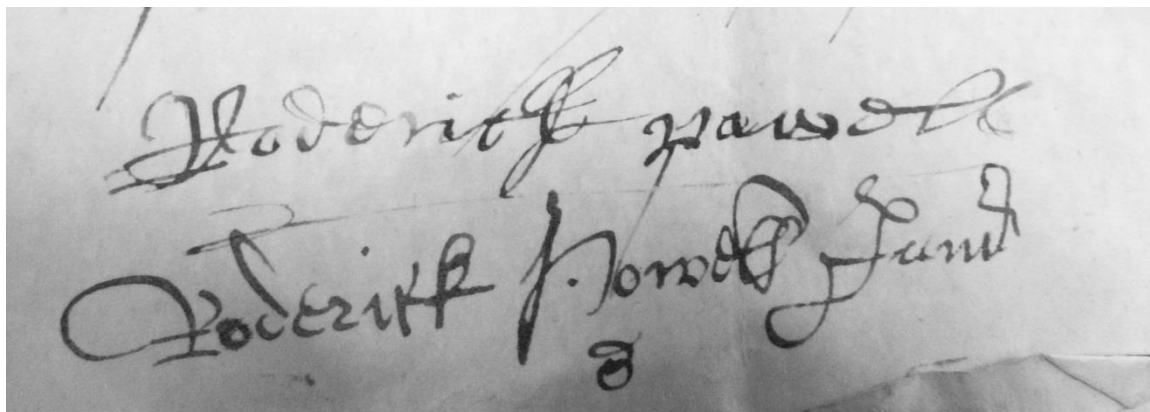 Roderick pawell
Roderick Powell Jun